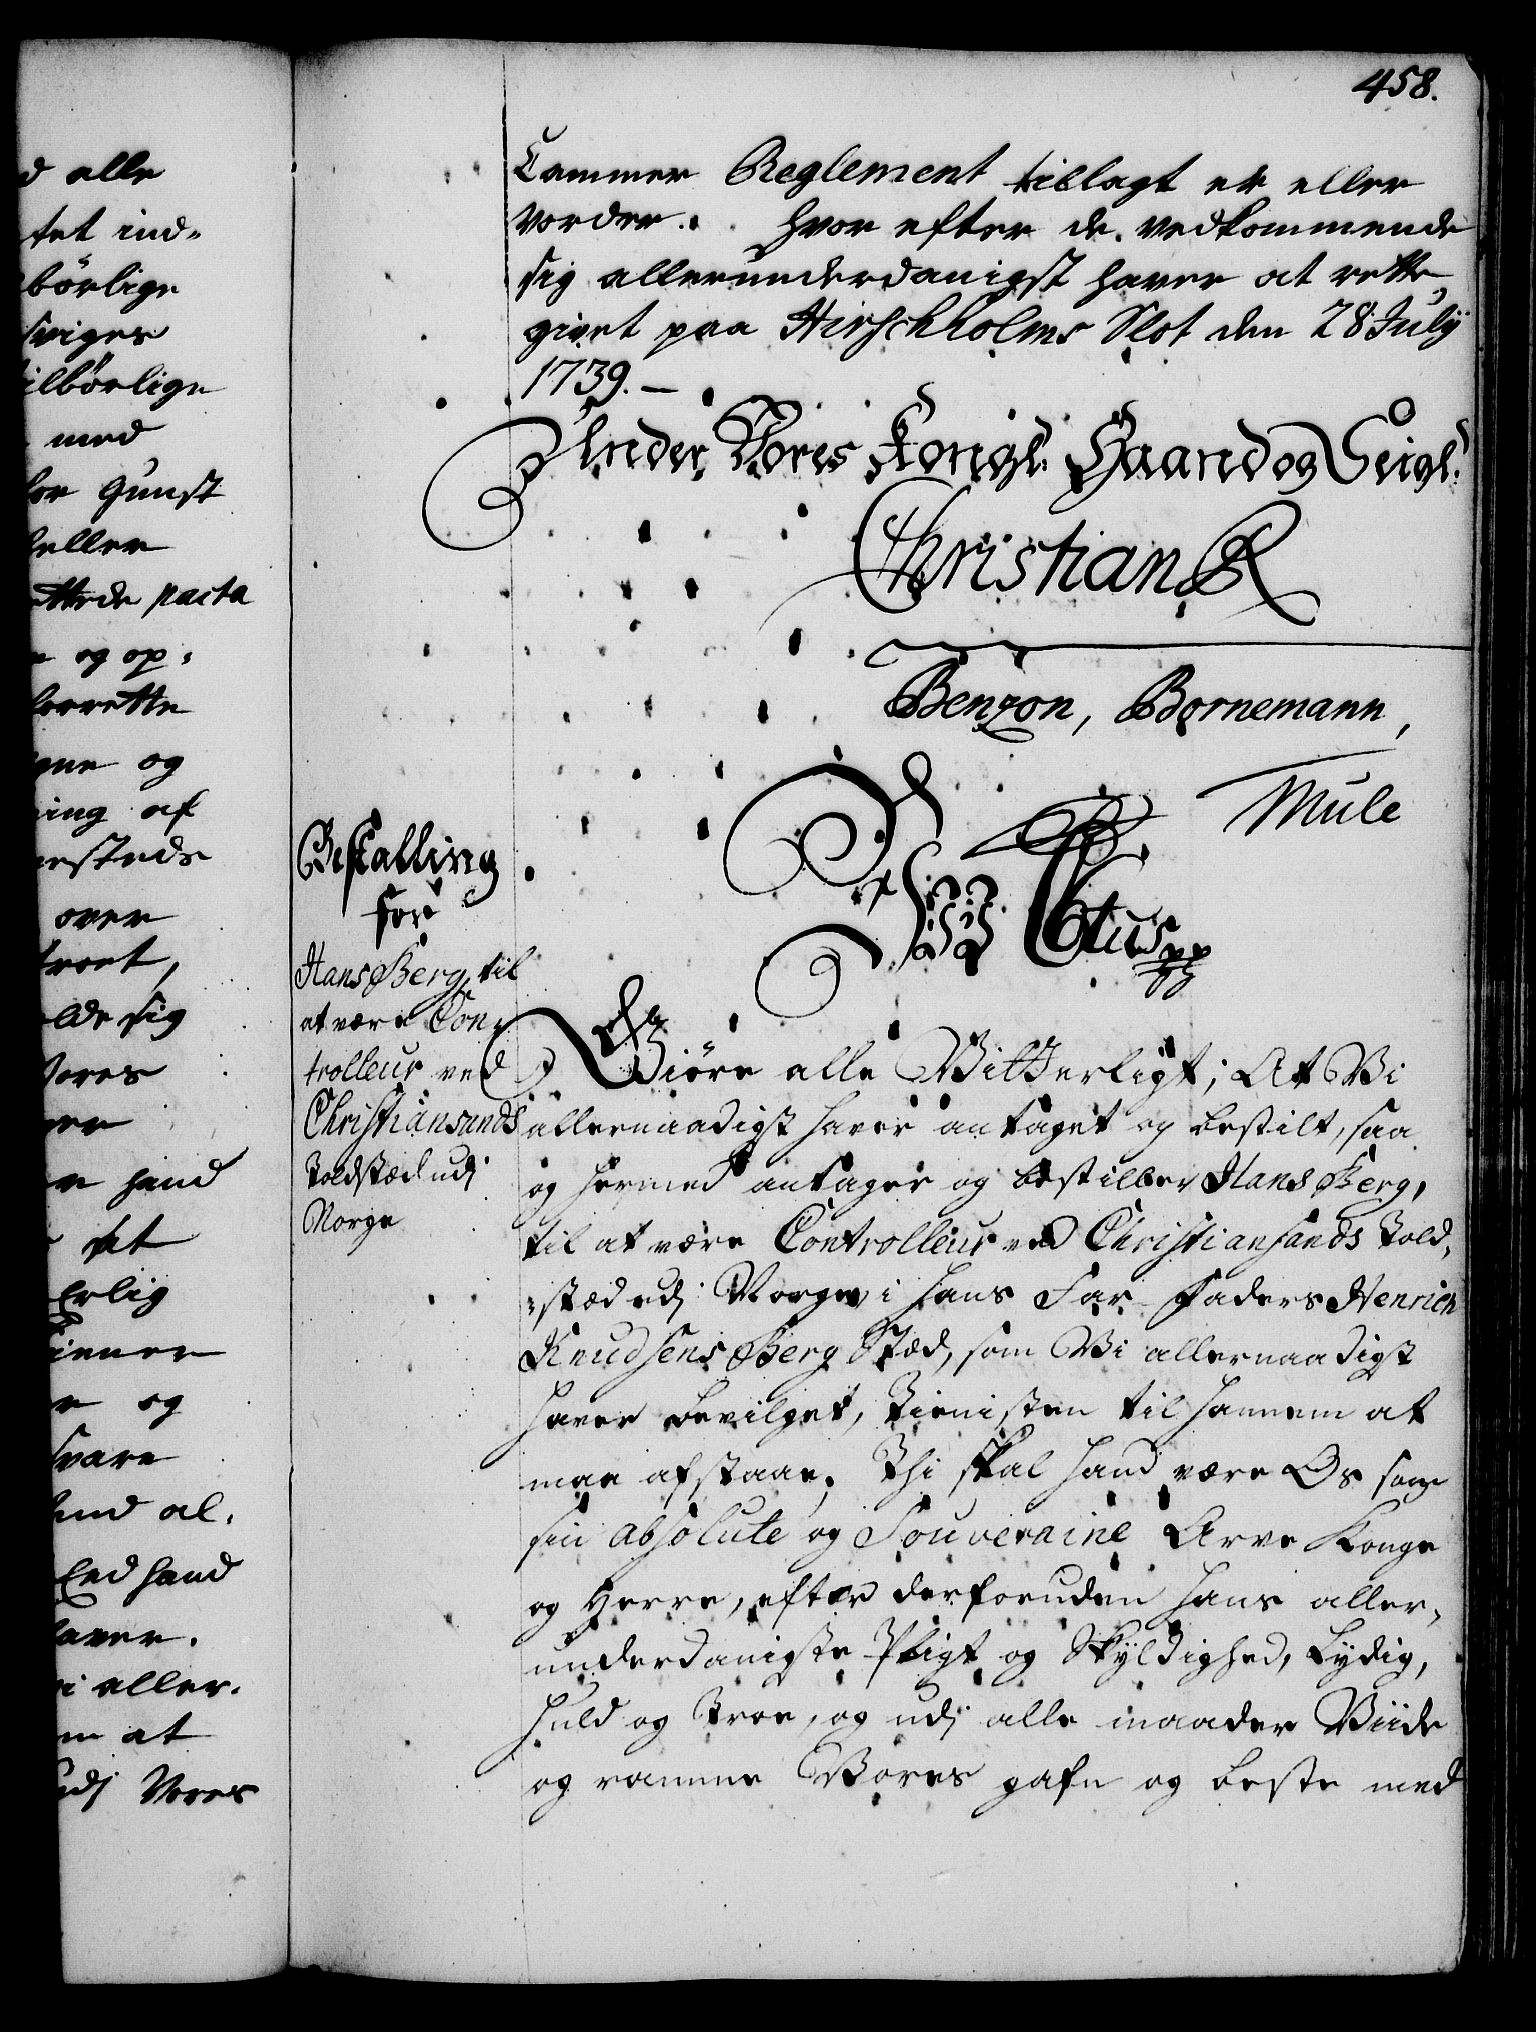 d alle
tet ind-
börlige
sviges
ilbörlige
med
for Gunst
heller
ettede pacta
e og op-
forrette
egne og
ning af
nesteds
over
troet,
olde sig
Vores
hand
det
Erlig
tienner
e og
svare
hand al-
End hand
haver.
i aller-
m at
udj Vores
458.
Cammer Reglement tillagt er eller
vorder. hvor efter de vedkommende
sig allerunderdanigst haver at rette,
givet paa Hirschholms Slot den 28 July
1739.—
Under Vores Kongl: Haand og Seigl.
Christian R
Benzon, Bornemann,
Mule
Bestalling
for
Hans Berg til
at være Con-
trolleur ved
Christiansands
Toldstæd udj
Norge
Wii C6tus pp
Giöre alle Vitterligt; At Vi
allernaadigst haver antaget og bestilt, saa
og hermed antager og bestiller Hans Berg,
til at være Controlleur ved Christiansands Told-
stæd udj Norge, i hans Far-Faders Henrich
Knudsens Berg Stæd, som Vi allernaadigst
haver bevilget, Tienisten til hannem at
maae afstaae; Thi skal hand være Os som
sin absolute og Souveraine Arve Konge
og Herre, efter derforuden hans aller-
underdanigste Pligt og Skyldighed, Lydig,
huld og Troe, og udj alle maader Viide
og ramme Vores gafn og beste med